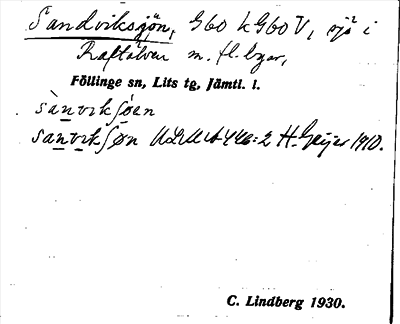 Sandviksjön, G60 k G60 V, sjö i
Raftälven m. fl. byar,
Föllinge sn, Lits tg, Jämtl. l.
sànvikʃøen
sanvikʃøn ULMA 446:2 H. Geijer 1910.
C. Lindberg 1930.